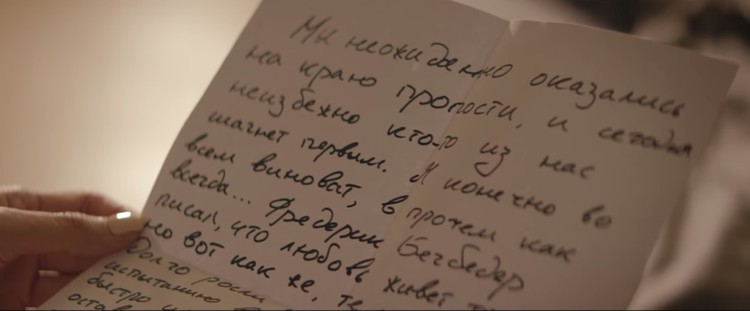 Мы неожиданно оказались
на краю пропасти, и сегодня
неизбежно кто-то из нас
шагнет первым. И конечно во
всем виноват, впрочем как
всегда... Фредерик Бегбедер
писал, что любовь живет
но вот как же,
Долго
испытанию
быстро